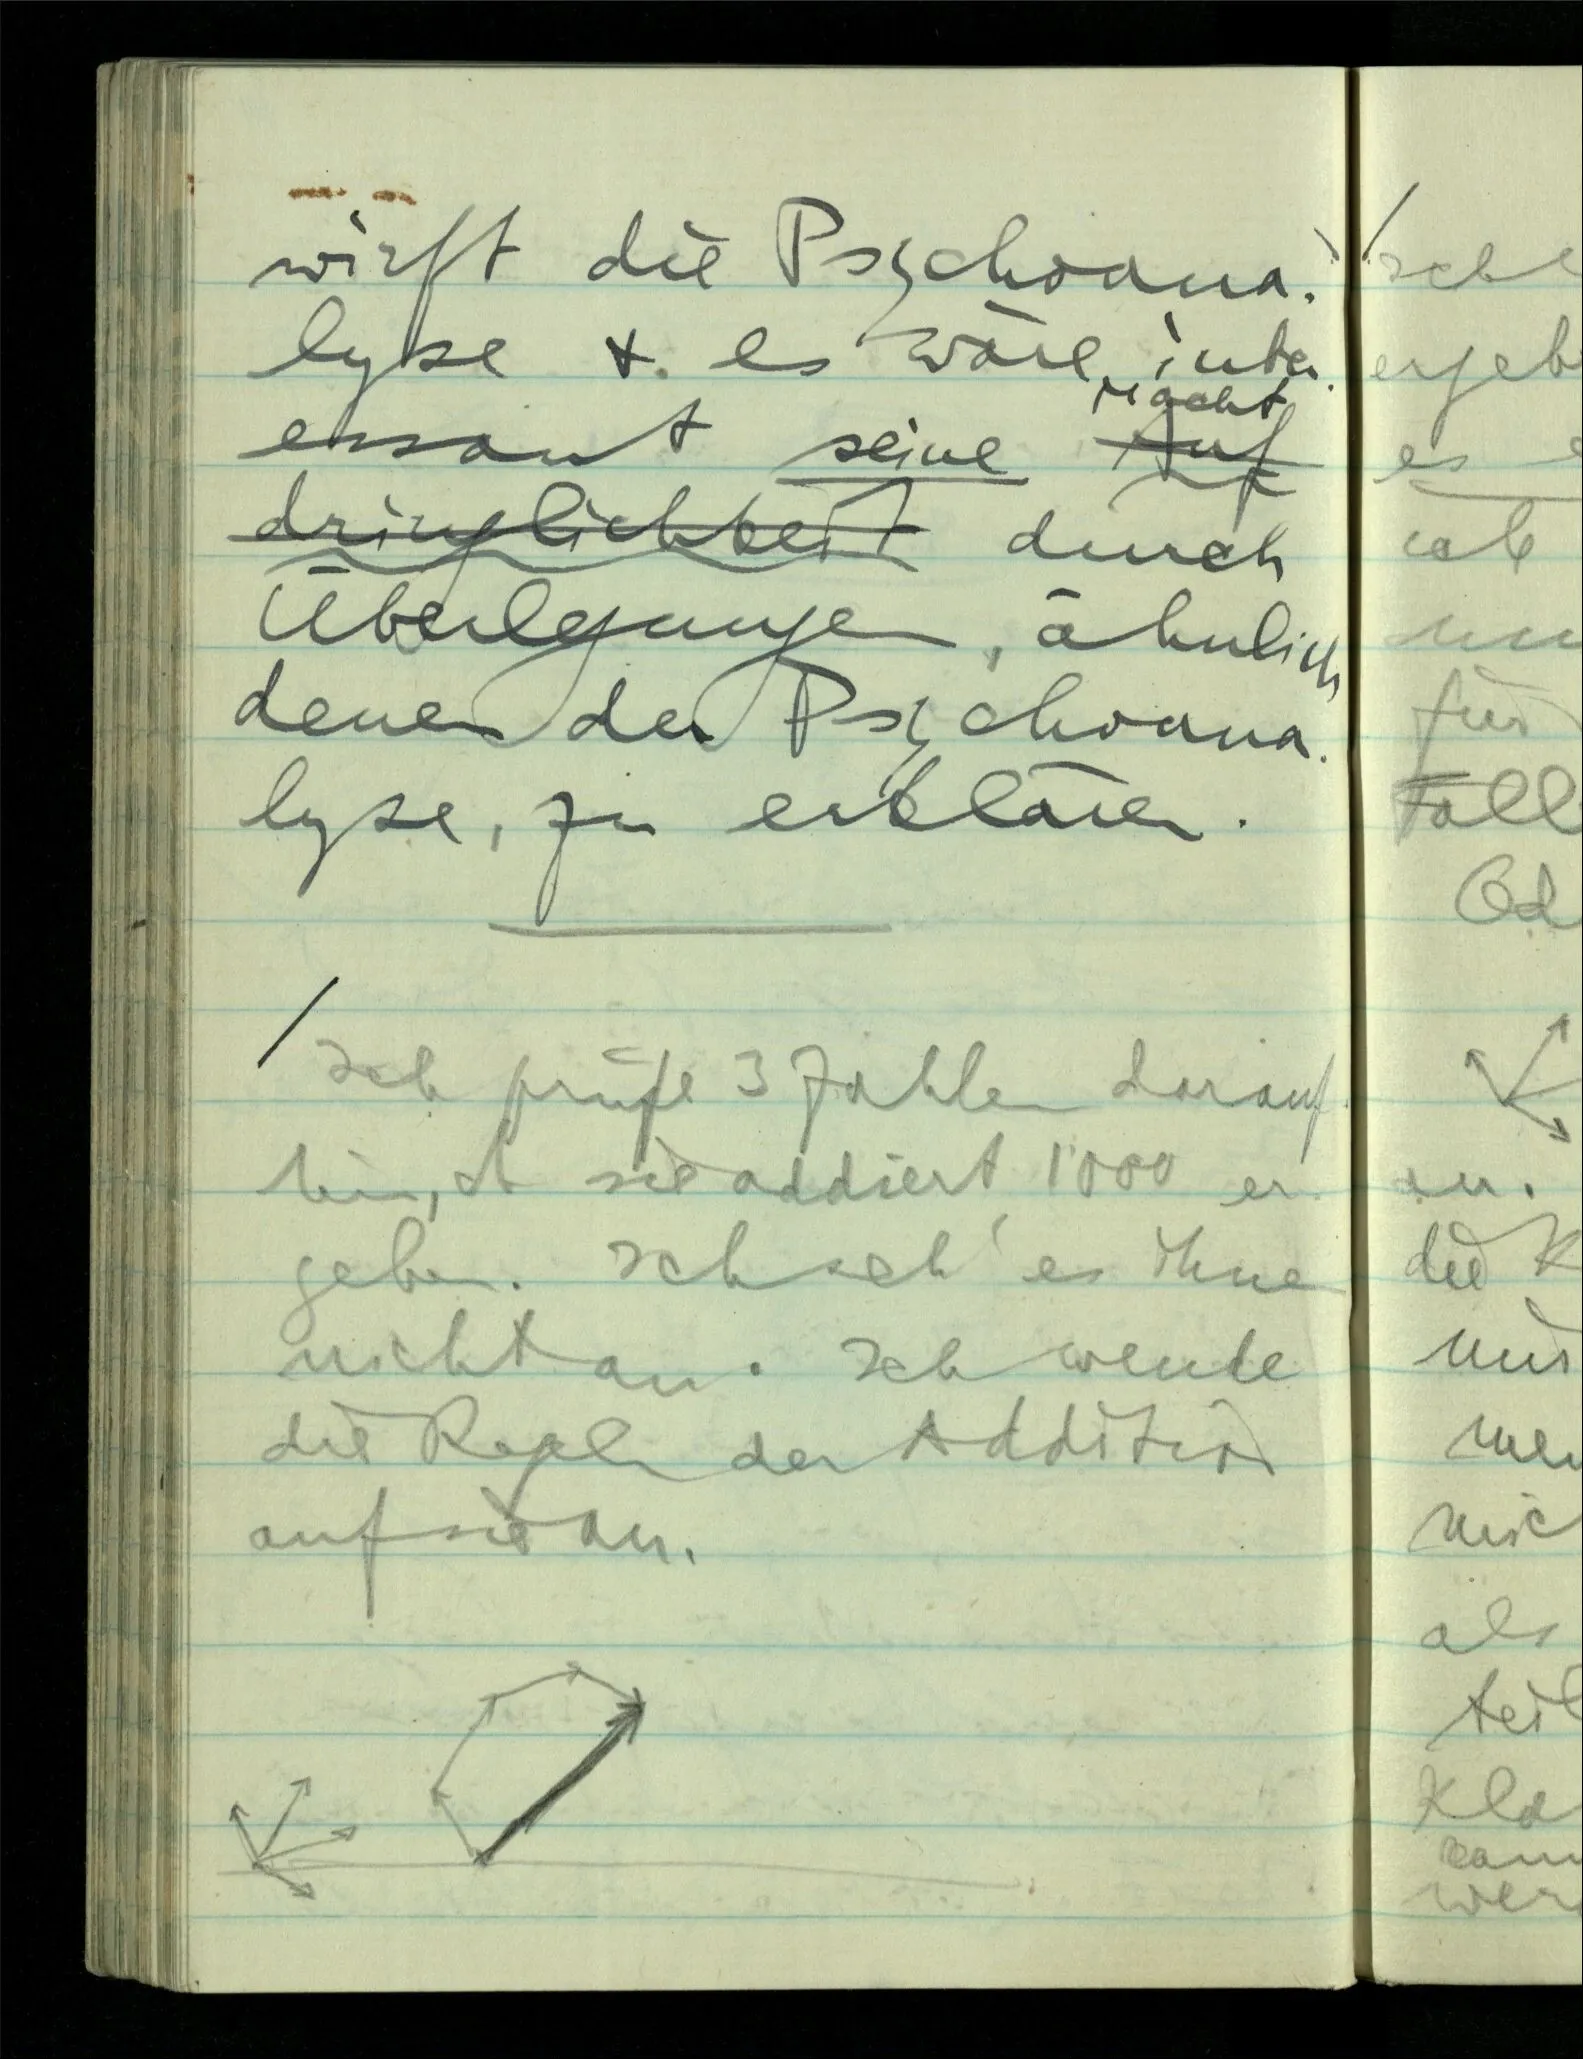 wirft die Psychoana-
lyse & es wäre inter-
essant seine Macht Auf
dringlichkeit durch
Überlegungen, ähnlich
denen der Psychoana-
lyse, zu erklären.
/
Ich prüfe 3 Zahlen darauf
hin, ob sie addiert 1000 er-
geben. Ich seh' es ihnen
nicht an. Ich wende
die Regeln der Addition
auf sie an.
/
ergeb
es
für
Fall
Od
an.
die K
und
nic
als
teil
Kla
wer